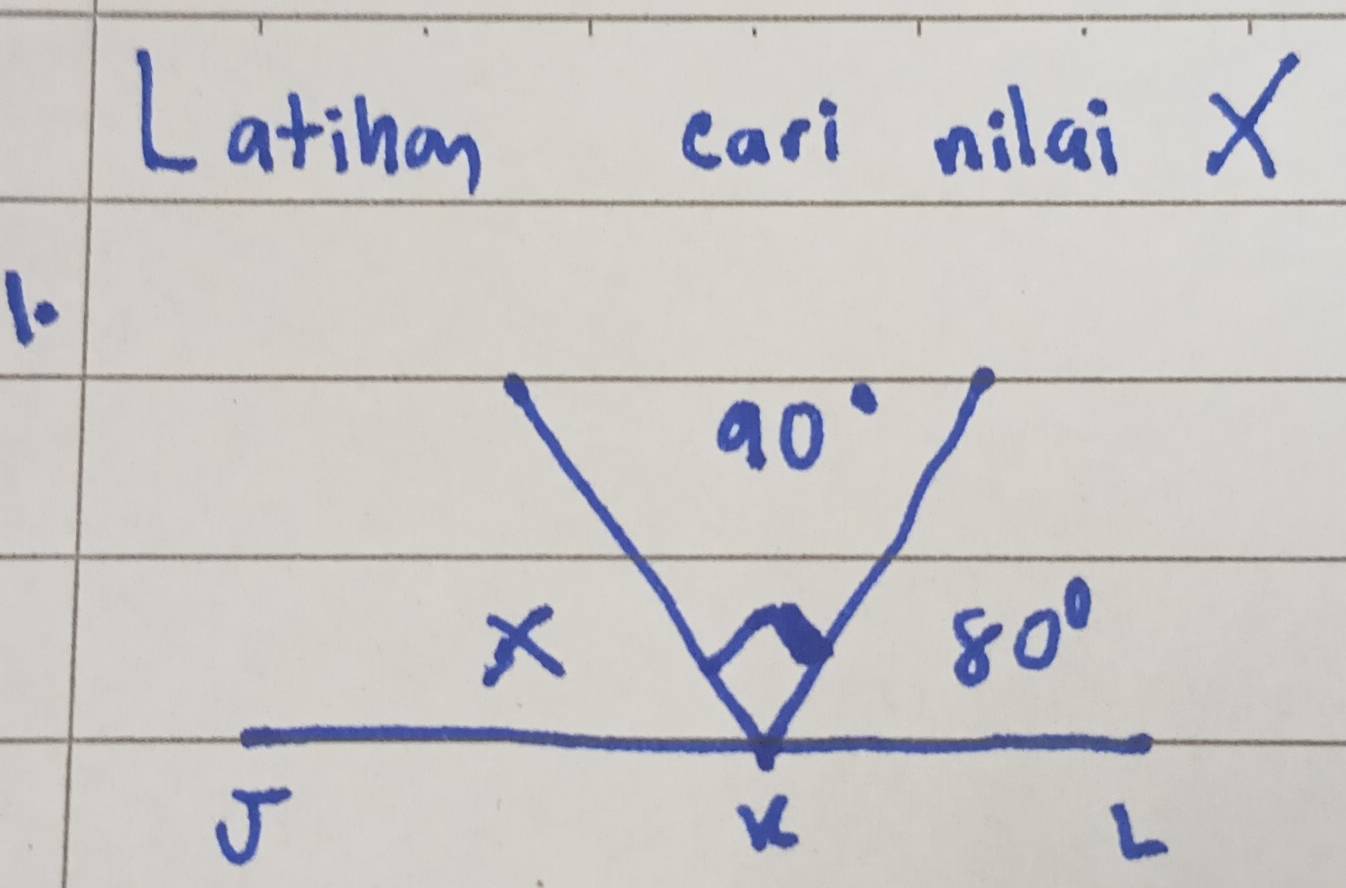 Latihan cari nilai X
1.
90°
X 80°
J K L